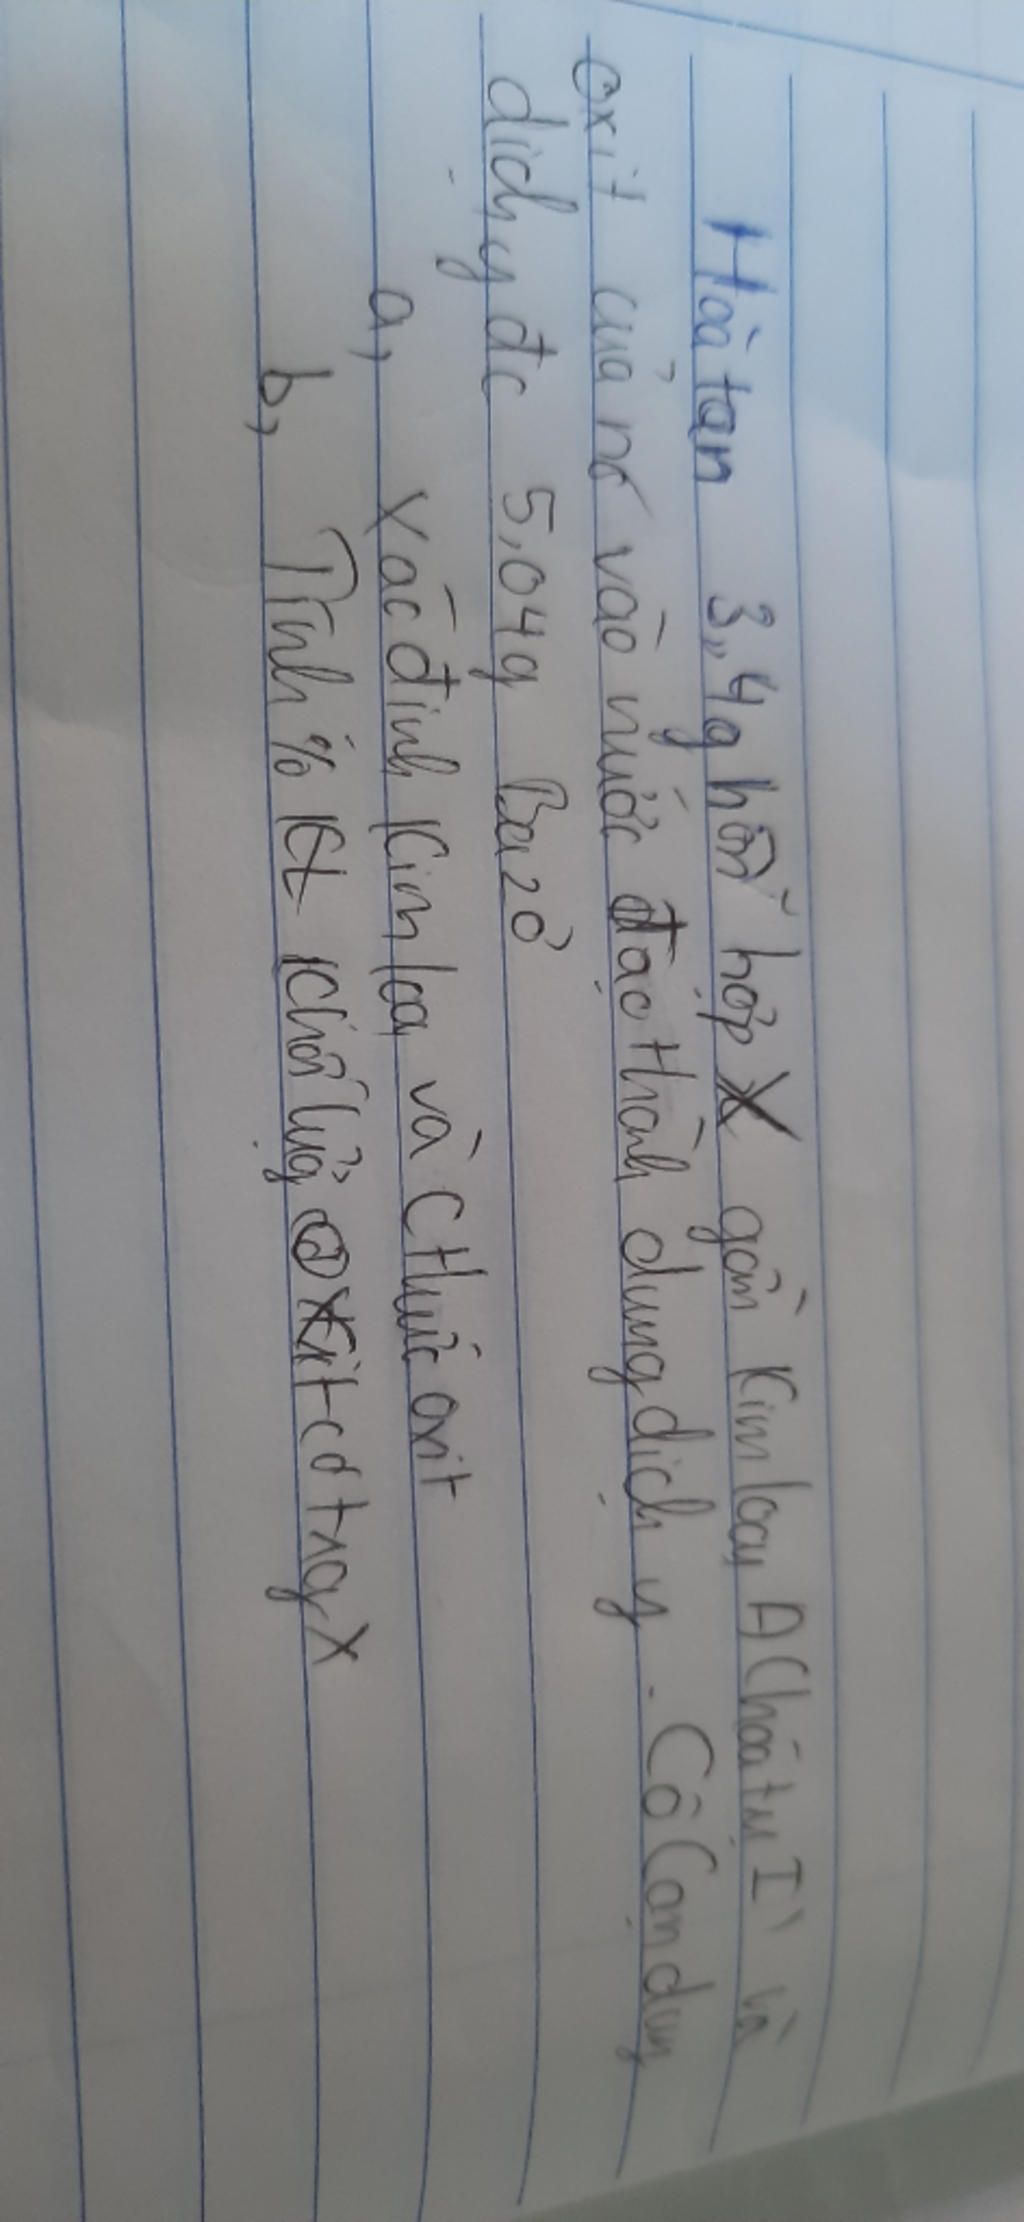 Hoà tan 3,4g hỗn hợp X gồm Kim loại A (hoá trị I) và
oxit của nó vào nước đạo thành dung dịch y. Cô Cạn dung
dịch y đc 5,04g Bazơ
a, Xác định Kim loại và CThức oxit
b, Tính % Kt Khối lượg oxit có trog X